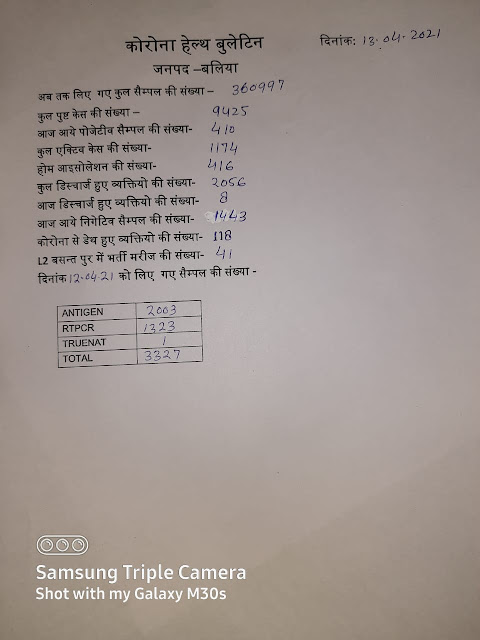 कोरोना हेल्थ बुलेटिन
दिनांक: 13.04.2021
जनपद –बलिया
अब तक लिए गए कुल सैम्पल की संख्या – 360997
कुल पुष्ट केस की संख्या – 9425
आज आये पोजेटीव सैम्पल की संख्या- 410
कुल एक्टिव केस की संख्या- 1174
होम आइसोलेशन की संख्या- 416
कुल डिस्चार्ज हुए व्यक्तियो की संख्या- 2056
आज डिस्चार्ज हुए व्यक्तियो की संख्या- 8
आज आये निगेटिव सैम्पल की संख्या- 1443
कोरोना से डेथ हुए व्यक्तियो की संख्या- 118
L2 बसन्त पुर में भर्ती मरीज की संख्या- 41
दिनांक 12.04.21 को लिए गए सैम्पल की संख्या -
ANTIGEN 2003
RTPCR 1323
TRUENAT 1
TOTAL 3327
Samsung Triple Camera
Shot with my Galaxy M30s